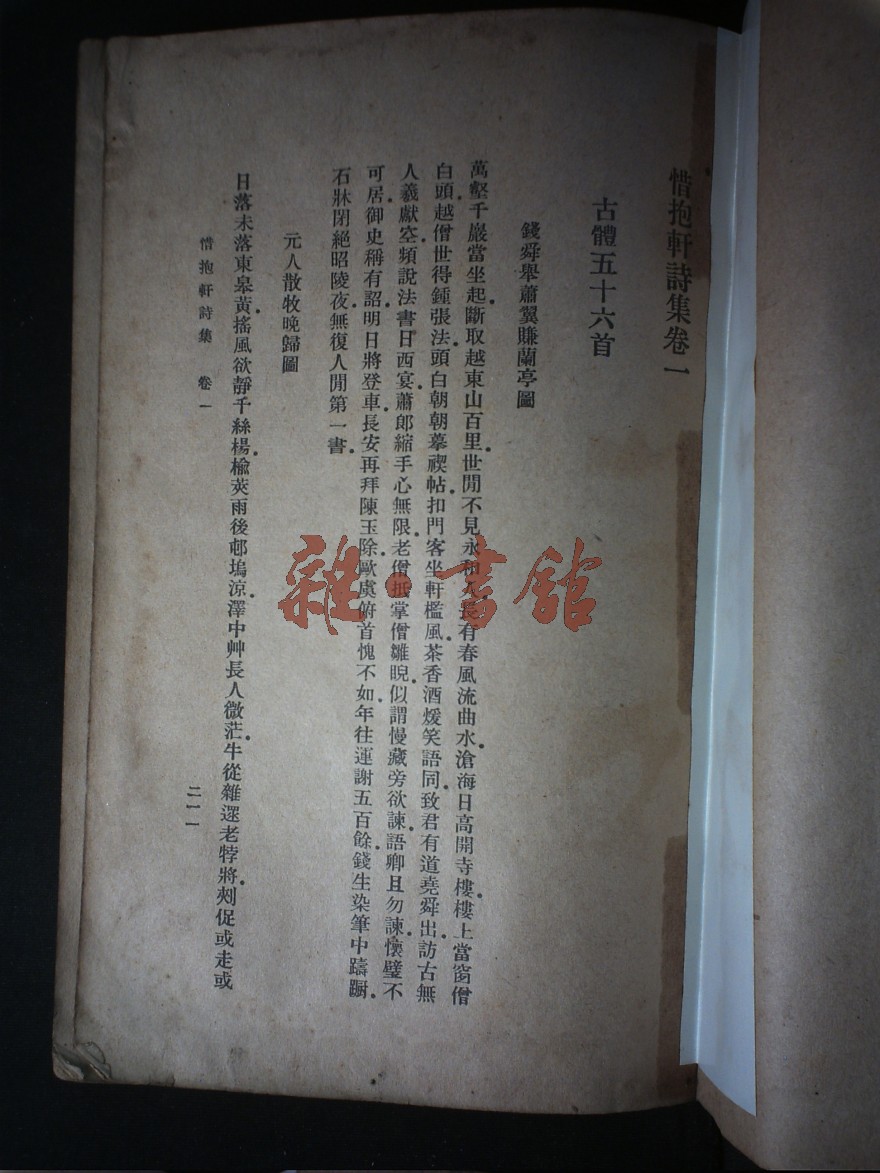 惜抱軒詩集卷一
古體五十六首
錢舜舉蕭翼賺蘭亭圖
萬壑千巖當坐起.斷取越東山百里.世閒不見永和人.長有春風流曲水.滄海日高開寺樓.樓上當窗僧
白頭.越僧世得鍾張法.頭白朝朝摹禊帖.扣門客坐軒檻風.茶香酒煖笑語同.致君有道堯舜出.訪古無
人羲獻空.頻說法書日西宴.蕭郎縮手心無限.老僧抵掌僧雛睨.似謂慢藏旁欲諫.語卿且勿諫.懷璧不
可居.御史稱有詔.明日將登車.長安再拜陳玉除.歐虞俯首愧不如.年往運謝五百餘.錢生染筆中躊躕.
石牀閉絕昭陵夜.無復人閒第一書.
元人散牧晚歸圖
日落未落東皋黃.搖風欲靜千絲楊.榆莢雨後邨塢涼.澤中艸長人微茫.牛從雜遝老牸將.剡促或走或
惜抱軒詩集 卷一
二一一
雜·書館